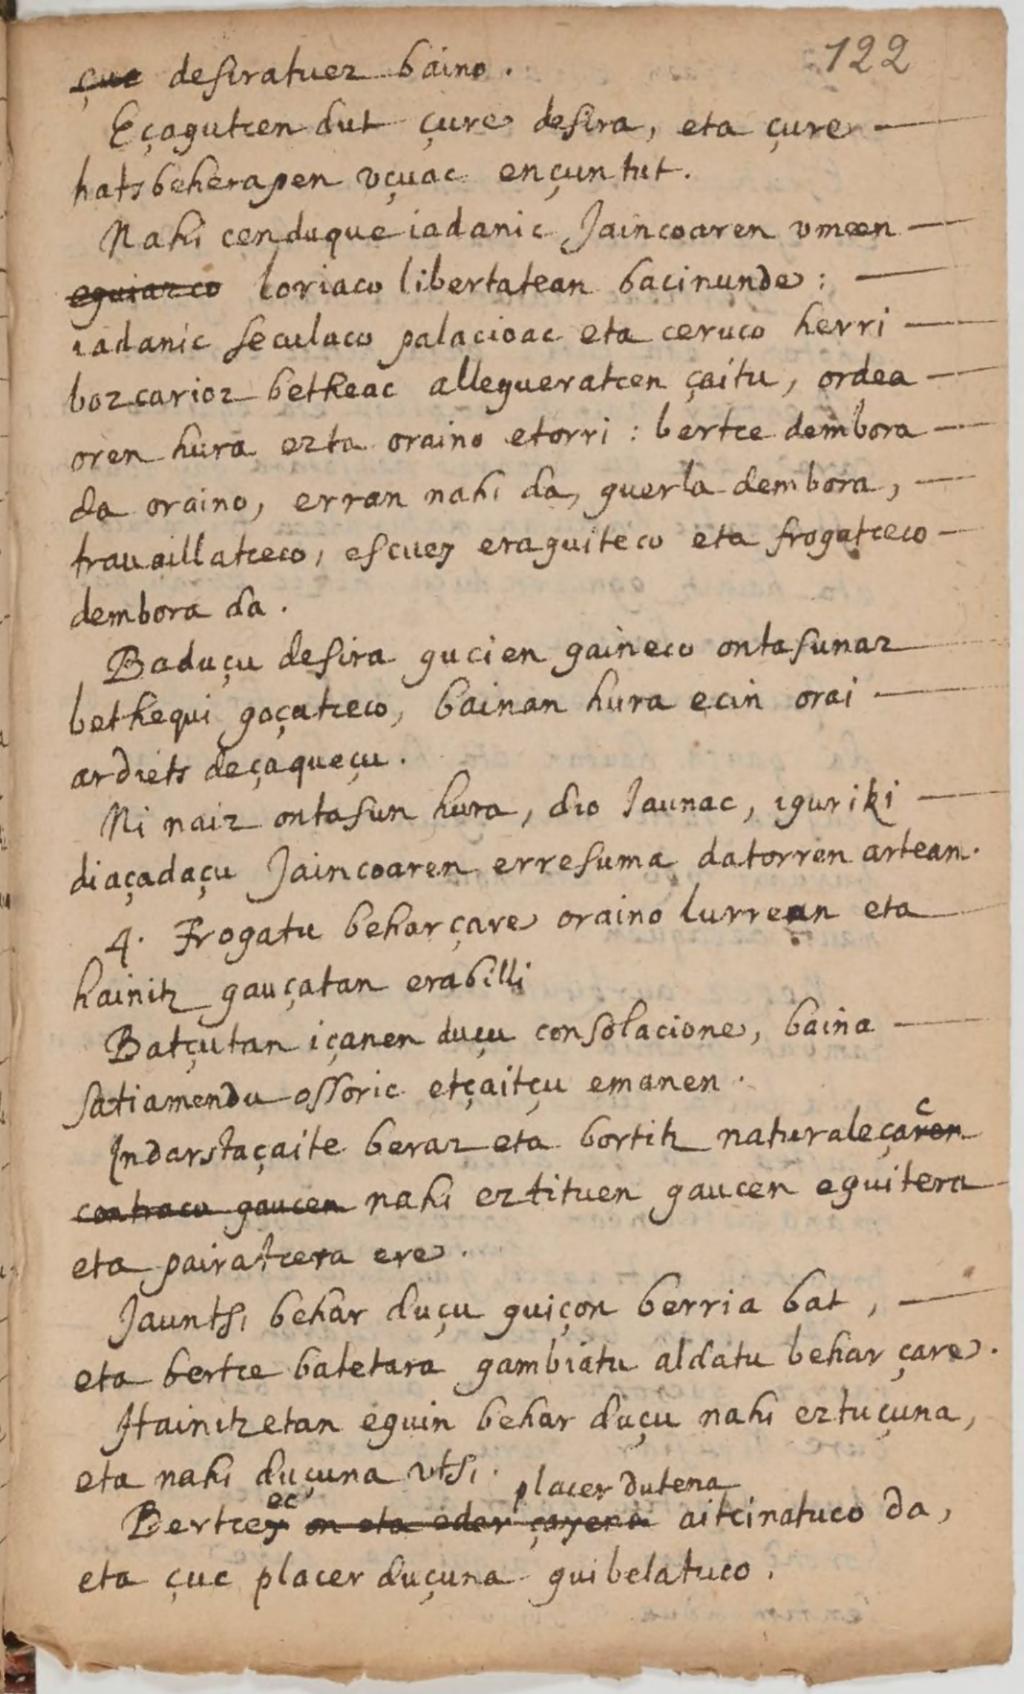 122
çuc desiratuez baino.
Eçagutcen dut çure desira, eta çure
hatsbeherapen vçuac ençun tut.
Nahi cenduque iadanic Jaincoaren vmeen
eguiazco loriaco libertatean bacinunde:
iadanic seculaco palacioac eta ceruco herri
bozcarioz betheac allegueratcen çaitu, ordea
oren hura ezta oraino etorri: bertce dembora
da oraino, erran nahi da, guerla dembora,
travaillatceco, escuez eraguiteco eta frogatceco
dembora da.
Baduçu desira gucien gaineco ontasunaz
bethequi goçatceco, bainan hura ecin orai
ardiets deçaqueçu.
Ni naiz ontasun hura, dio Jaunac, iguriki
diaçadaçu Jaincoaren erresuma datorren artean.
4. Frogatu behar çare oraino lurrean eta
hainitz gauçatan erabilli
Batçutan içanen duçu consolacione, baina
satiamendu ossoric etçaitçu emanen.
c
Indarstaçaite beraz eta bortitz naturaleçaren
contraco gaucen nahi eztituen gaucen eguitera
eta pairatcera ere.
Jauntsi behar duçu guiçon berria bat,
eta bertce batetara gambiatu aldatu behar çare.
Hainitzetan eguin behar duçu nahi eztuçuna,
eta nahi duçuna vtsi.
ec placer dutena
Bertcez on eta eder çayena aitcinatuco da,
eta çuc placer duçuna guibelatuco.